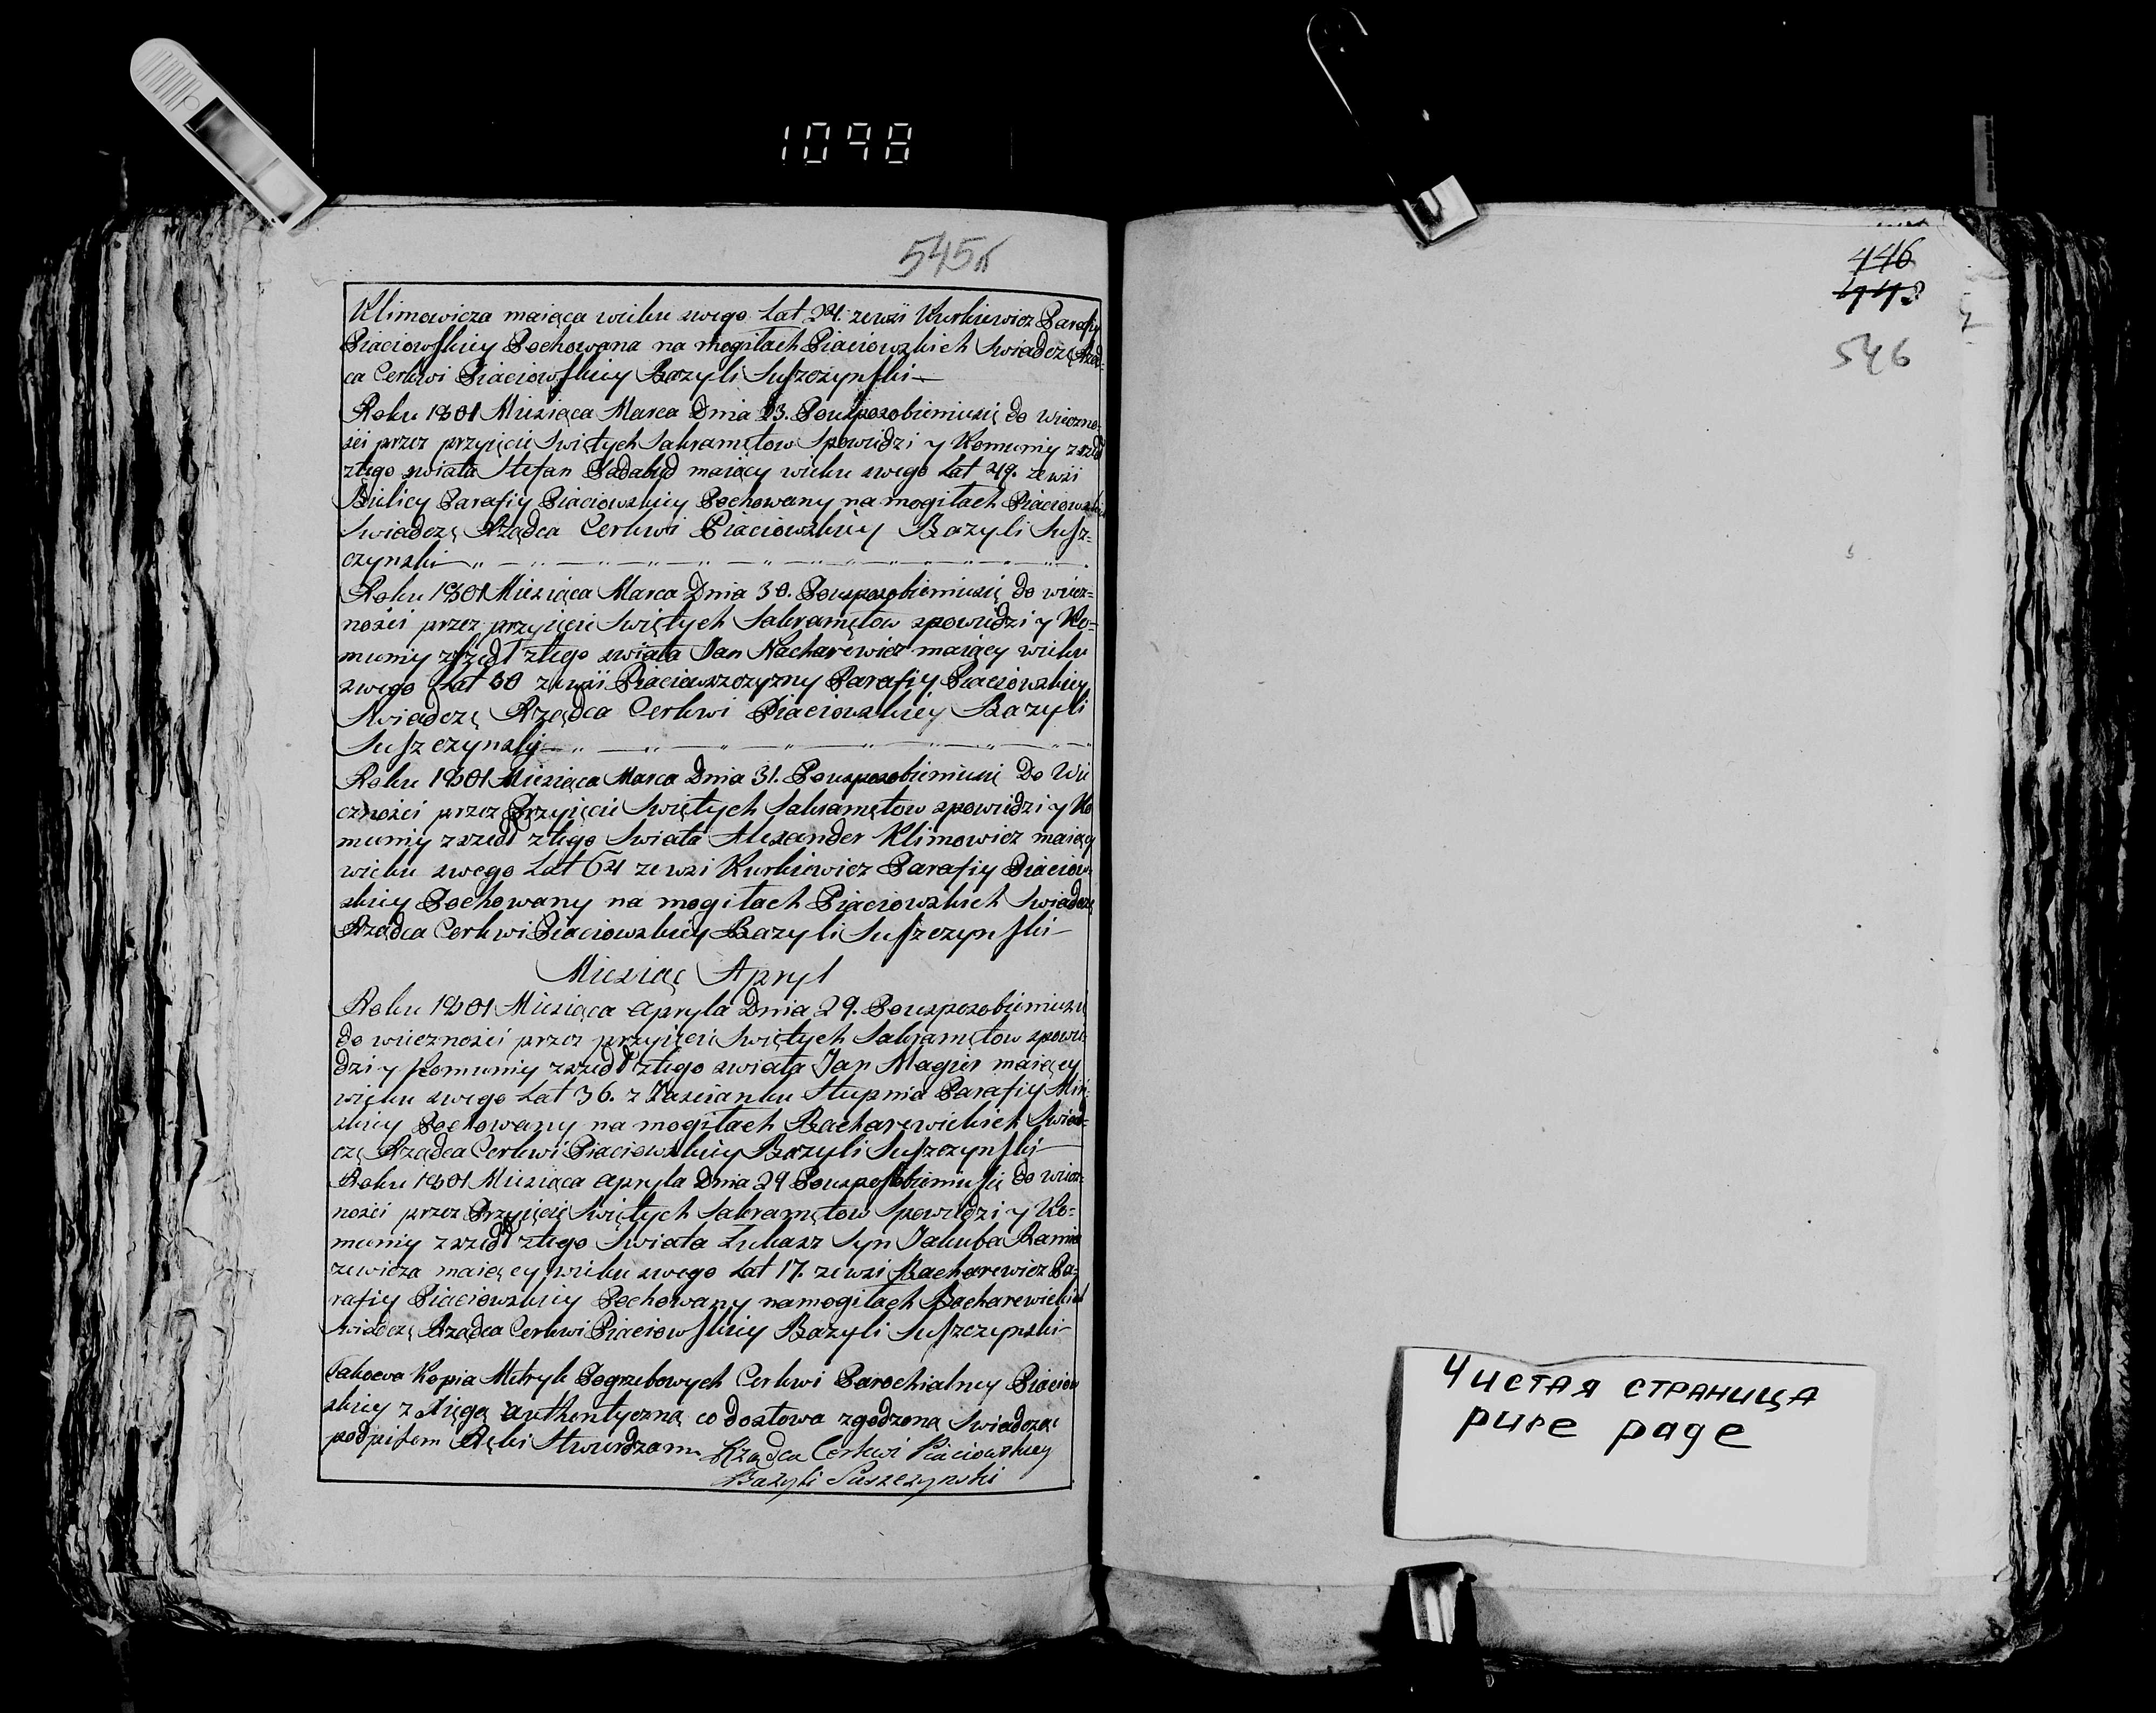 1098
545
Klimowicza maiąca wieku swego Lat 24. zewsi Kurkiewicz Parafiy
Piaciowskiey Pochowana na mogiłach Piaciowskich Swiadczę Rząd=
ca Cerkwi Piaciowskiey Bazyli Suszczynski
Roku 1801 Miesiąca Marca Dnia 23. Pousposobieniusię do wieczno=
sci przez przyięcie Swiętych Sakramętow Spowiedzi y Komuniy zszedł
ztego swiata Stefan maiący wieku swego Lat 49. zewsi
Bielicy Parafiy Piaciowskiey Pochowany na mogiłach Piaciowskich
Swiadczę Rządca Cerkwi Piaciowskiey Bazyli Susz=
czynski
Roku 1801 Miesiąca Marca Dnia 30. Pousposobieniusię do wiecz=
nosci przez przyięcie Swiętych Sakramętow spowiedzi y Ko=
muniy zszedł ztego swiata Jan Kacharewicz maiący wieku
swego Lat 30 zewsi Piaciowszczyzny Parafiy Piaciowskiey
Swiadczę Rządca Cerkwi Piaciowskiey Bazyli
Suszczynsky
Roku 1801 Miesiąca Marca Dnia 31. Pousposobieniusię Do Wie
cznosci przez Przyięcie Swiętych Sakramętow spowiedzi y Ko
muniy zszedł ztego Swiata Alexander Klimowicz maiący
wieku swego Lat 64 zewsi Kurkiewicz Parafiy Piaciow
skiey Pochowany na mogiłach Piaciowskich Swiadczę
Rządca Cerkwi Piaciowskiey Bazyli Suszczynski
Miesiąc Apryl
Roku 1801 Miesiąca apryla Dnia 29. Pousposobieniusię
do wiecznosci przez przyięcie Swiętych Sakramętow spowie
dzi y komuniy zszedł ztego swiata Jan Magier maiący
wieku swego Lat 36. z Zascianku Stupnia Parafiy Min
skiey Pochowany na mogiłach Bacharewickich Swiad=
czę Rządca Cerkwi Piaciowskiey Bazyli Suszczynski
Roku 1801 Miesiąca apryla Dnia 29 Pousposobieniusię do wiecz=
nosci przez Przyięcie Swiętych Sakramętow Spowiedzi y Ko=
muniy zszedł ztego Swiata Łukasz Syn Jakuba
maiący wieku swego Lat 17. zewsi Bacharewicz Pa=
rafiy Piaciowskiey Pochowany na mogiłach Bacharewickich
Swiadczę Rządca Cerkwi Piaciowskiey Bazyli Suszczynski
Takowa Kopia Metryk Pogrzebowych Cerkwi Parochialney Piaciow
skiey z xięgą authentyczną co dosłowa zgodzona Swiadcząc
podpisem Ręki Stwierdzam Rządca Cerkwi Piaciowskiey
Bazyli Suszczynski
446
546
Чистая страница
pure page